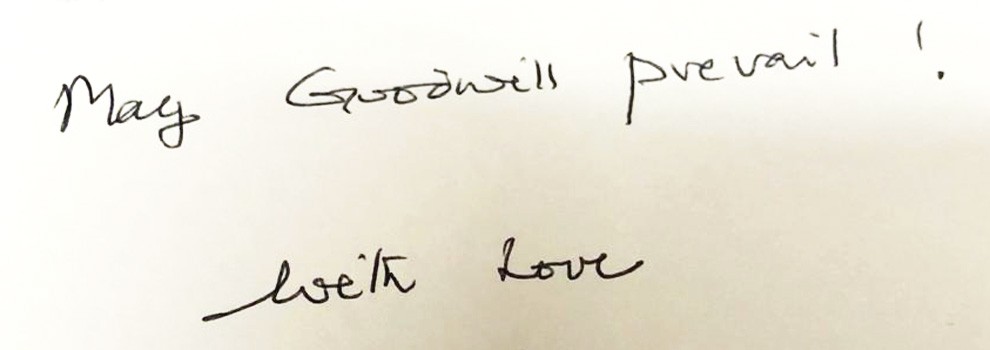 May Goodwill prevail !
With Love